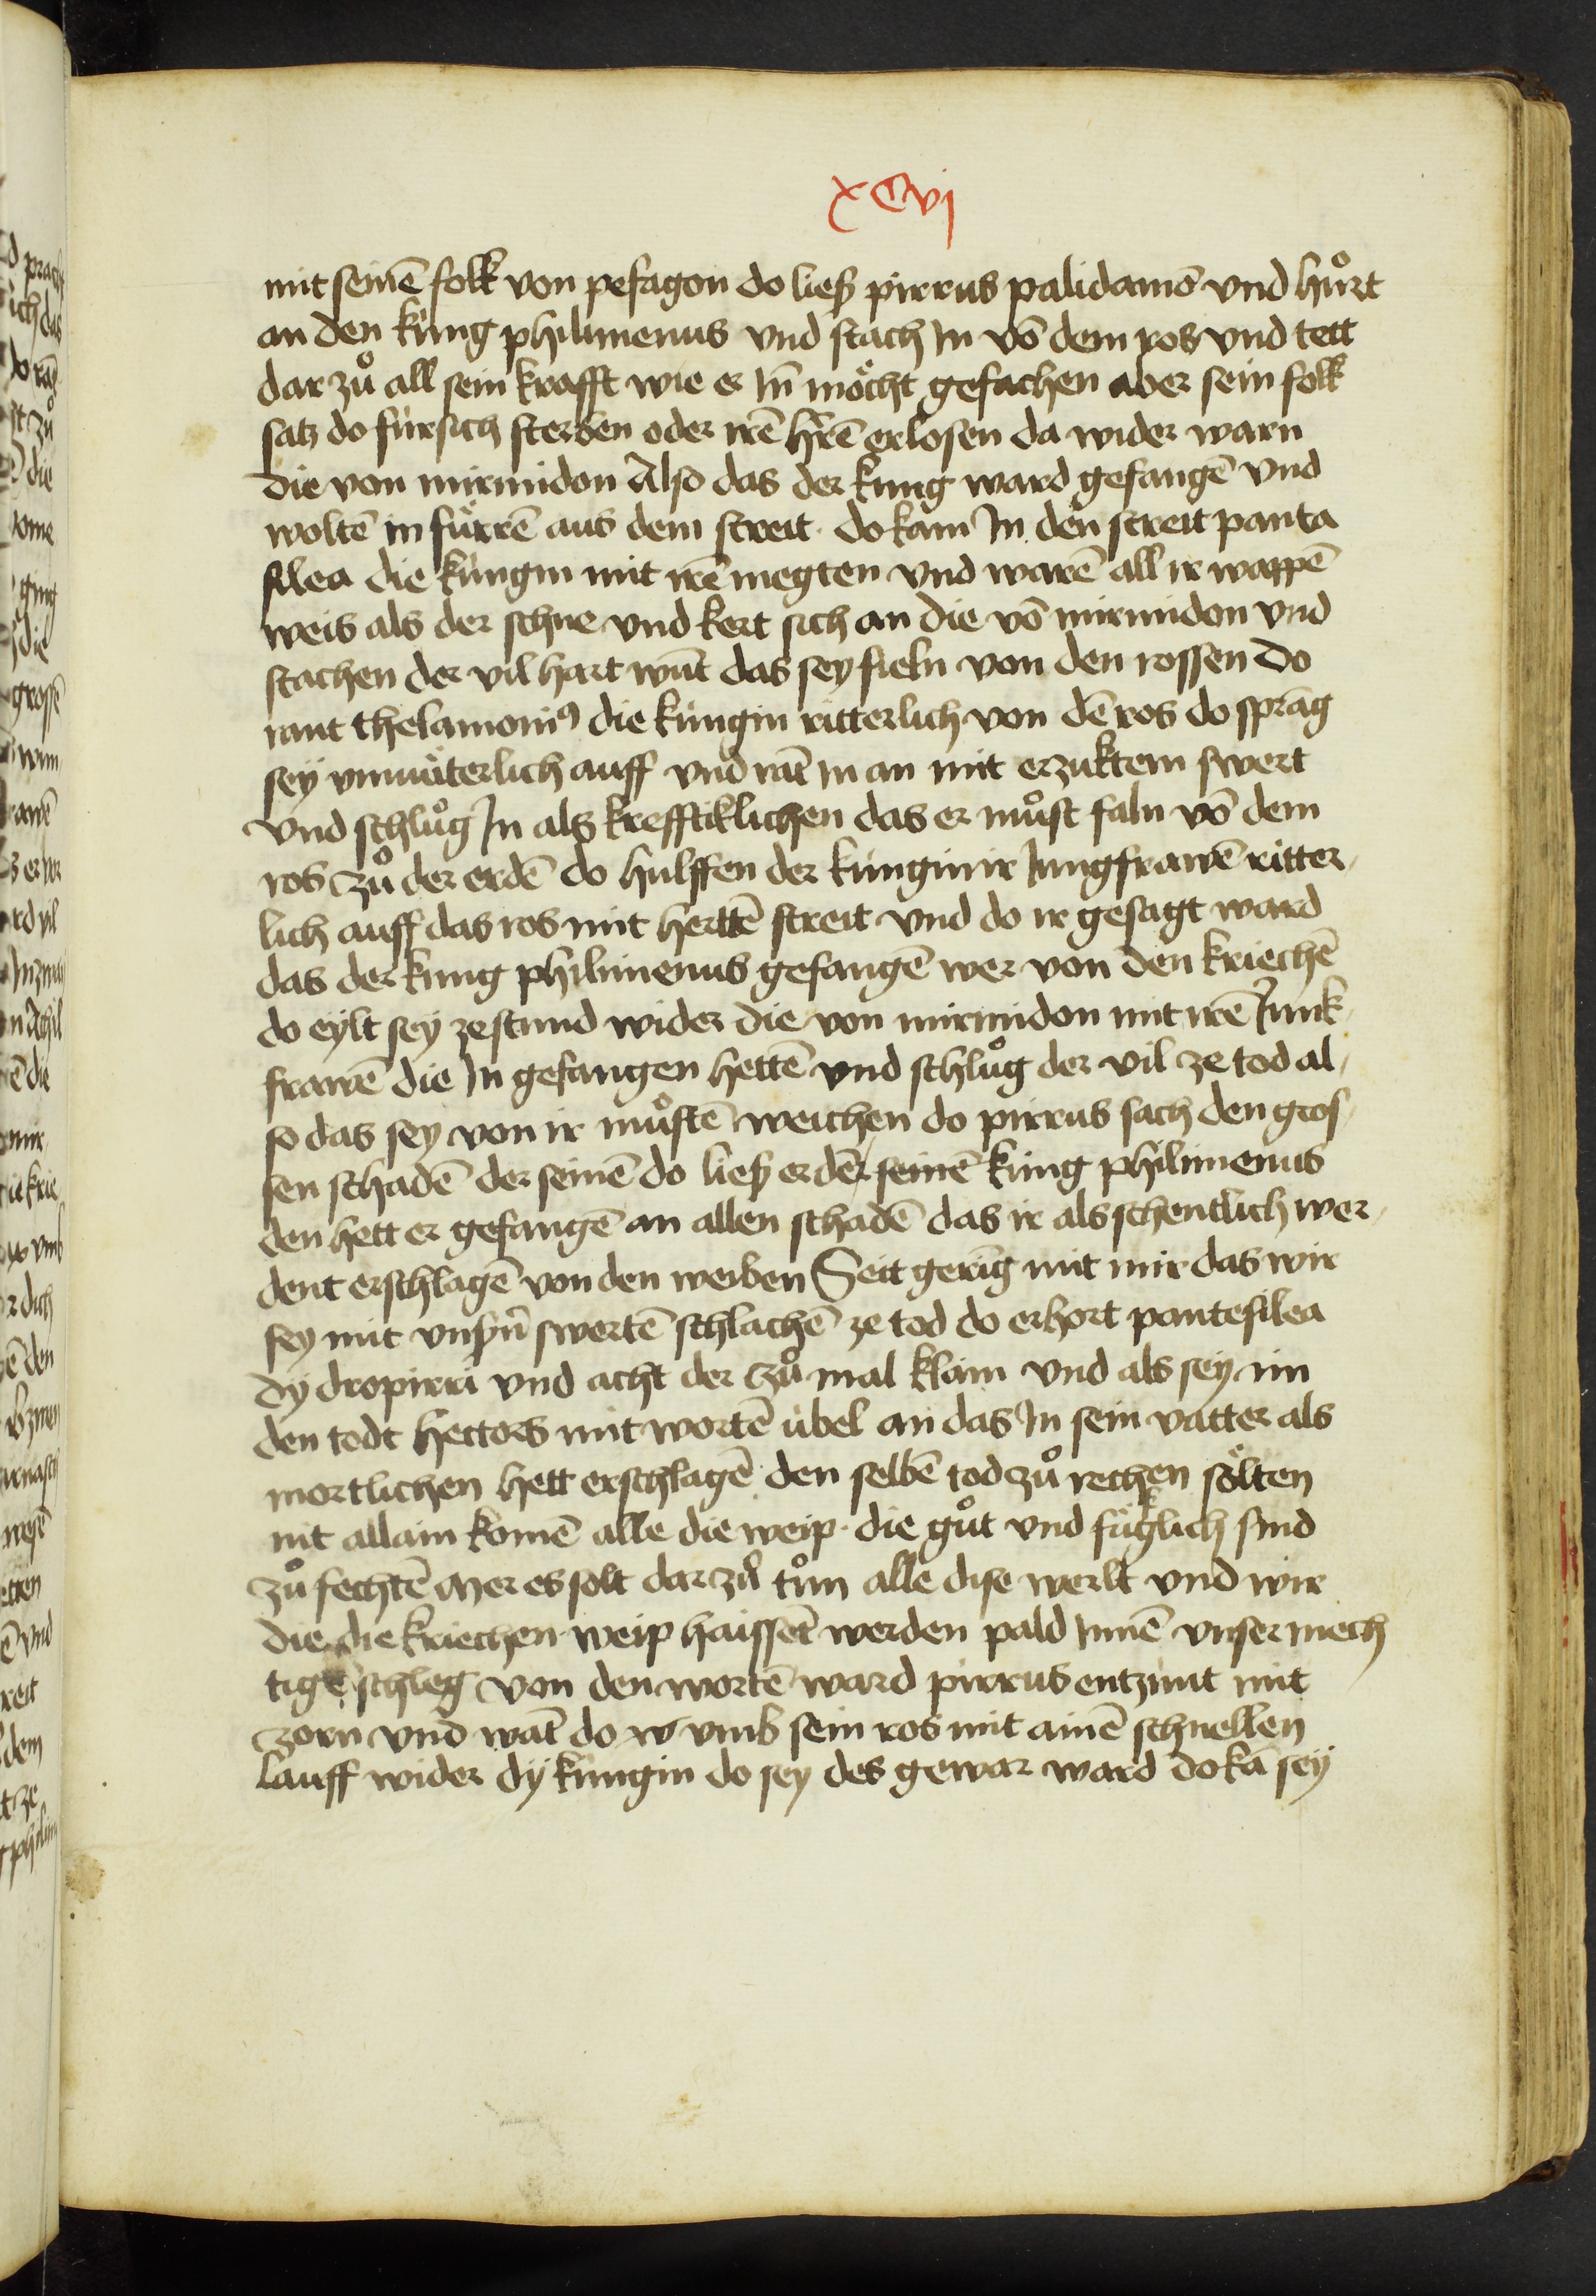 xCvj
mit seinē folk von pefagon do lieſz pirrus palidamō vnd hůrt
an den kung philimenus vnd stach In vō dem ros vnd tett
dar zů all sein krafft wie er In̄ möcht gefachen aber sein folk
satz do für sich sterben oder irē hꝛ̄ē erlosen da wider warn
die von mirmidon Also das der kung ward gefangē vnd
woltē in fürrē aus dem streit · do kam In den streit panta
silea die küngin mit irē megten vnd warē all ir wappē
weis als der schne vnd kert sich an die vō mirmidon vnd
stachen der vil hart wūt das sey fieln von den rossen do
rant thelamoniꝰ die küngin ritterlich von dē ros do sprāg
sey vnmüterlich auff vnd rāt in an mit erzuktem swert
vnd schlůg In als krefftiklichen das er můst faln vō dem
ros zů der erdē do hulffen der küngin ir Jungfrawē ritter-
lich auff das ros mit hertē streit vnd do ir gesagt ward
das der kung philimenus gefangē wer von den kriechē
do eylt sey zestund wider die von mirmidon mit irē Junk-
frawē die In gefangen hettē vnd schlůg der vil ze tod al-
so das sey von ir můstē weichen do pirrus sach den gros-
sen schadē der seinē do liesz er dē seinē küng philimenus
den hett er gefangē an allen schadē das ir als schentlich wer-
dent erschlagē von den weiben Seit gering mit mir das wir
sey mit vnsꝛ̄n swertē schlachē ze tod do erhort pantesilea
dy dro pirri vnd acht der zů mal klain vnd als sey im
den todt hectors mit wortē übel an das In sein vatter als
mortlichen hett erschlagē den selbē tod zů rechen sölten
nit allain komē alle die weip · die gůt vnd füglich sind
zů fechtē Mer es solt dar zů tůn alle dise werlt vnd wir
die die kriechen weip haissēt werden pald Innē vnser mech
tige schleg von den wortē ward pirrus entzünt mit
zorn vnd wāt do vmb sein ros mit ainē schnellen
lauff wider dÿ küngin do sey des gewar ward do kā sey